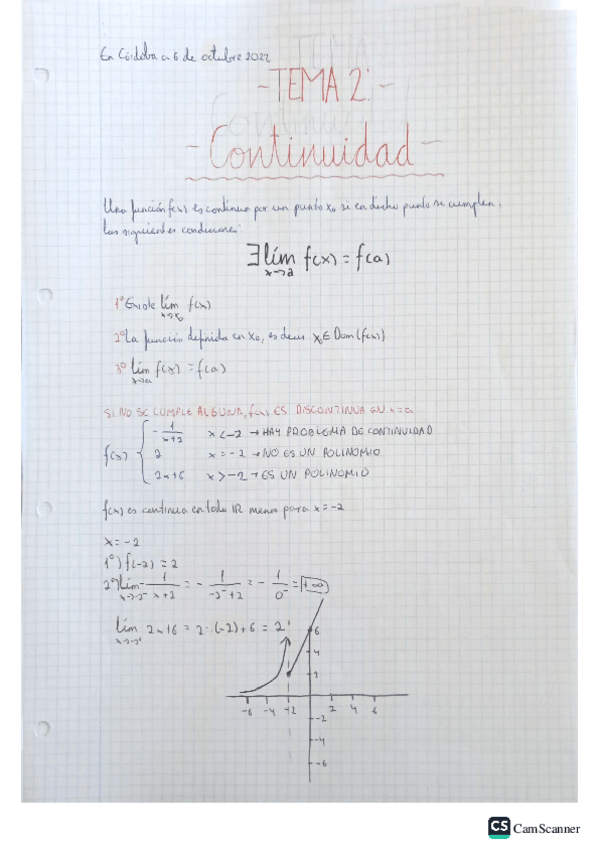 En Córdoba a 6 de octubre 2022
-TEMA 2:-
-Continuidad-
Una función f(x) es continua por un punto x₀ si en dicho punto se cumplen
las siguientes condiciones:
∃ lím x→a f(x) = f(a)
1º Existe lím x→x₀ f(x)
2º La función definida en x₀, es decir x₀ ∈ Dom (f(x))
3º lím x→a f(x) = f(a)
SI NO SE CUMPLE ALGUNA, f(x) ES DISCONTINUA EN x=a
f(x) { -1/(x+2) x<-2 → HAY PROBLEMA DE CONTINUIDAD
2 x=-2 → NO ES UN POLINOMIO
2x+6 x>-2 → ES UN POLINOMIO
f(x) es continua en todo IR menos para x=-2
x=-2
1º) f(-2) = 2
2º) lím x→-2⁻ -1/(x+2) = -1/(-2⁻+2) = -1/0⁻ = +∞
lím 2x+6 = 2·(-2)+6 = 2
6
4
2
-6 -4 -2 2 4 6
-2
-4
-6
CS CamScanner